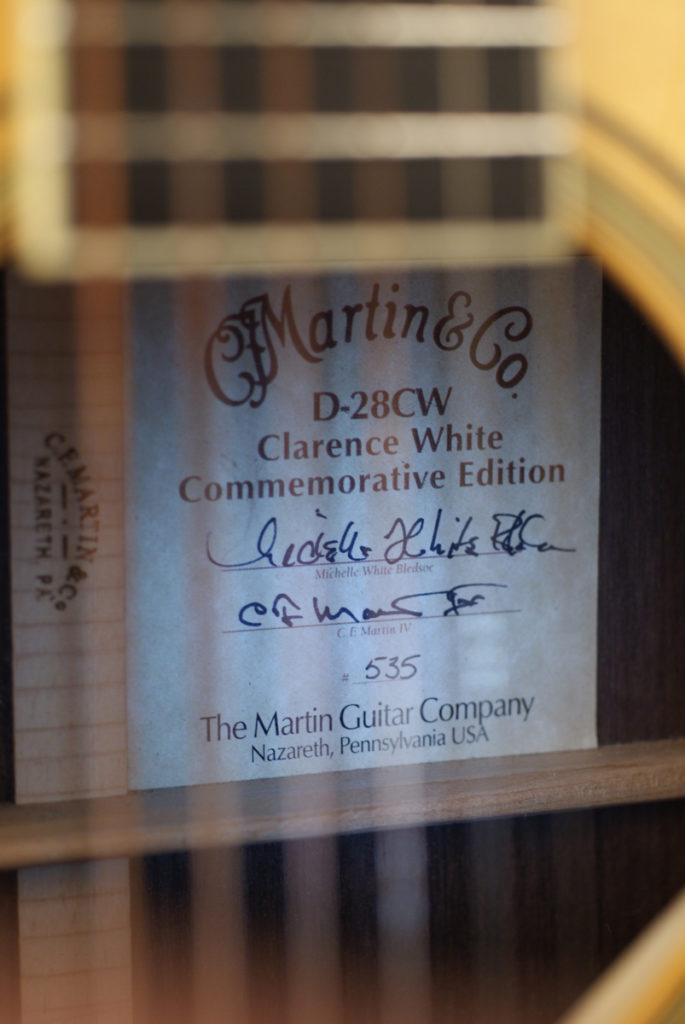 CF Martin & Co.
D-28CW
Clarence White
Commemorative Edition
Michelle White Bledsoe
Michelle White Bledsoe
C F Martin IV
C. F. Martin IV
# 535
The Martin Guitar Company
Nazareth, Pennsylvania USA
C.F. MARTIN & Co
NAZARETH, PA.